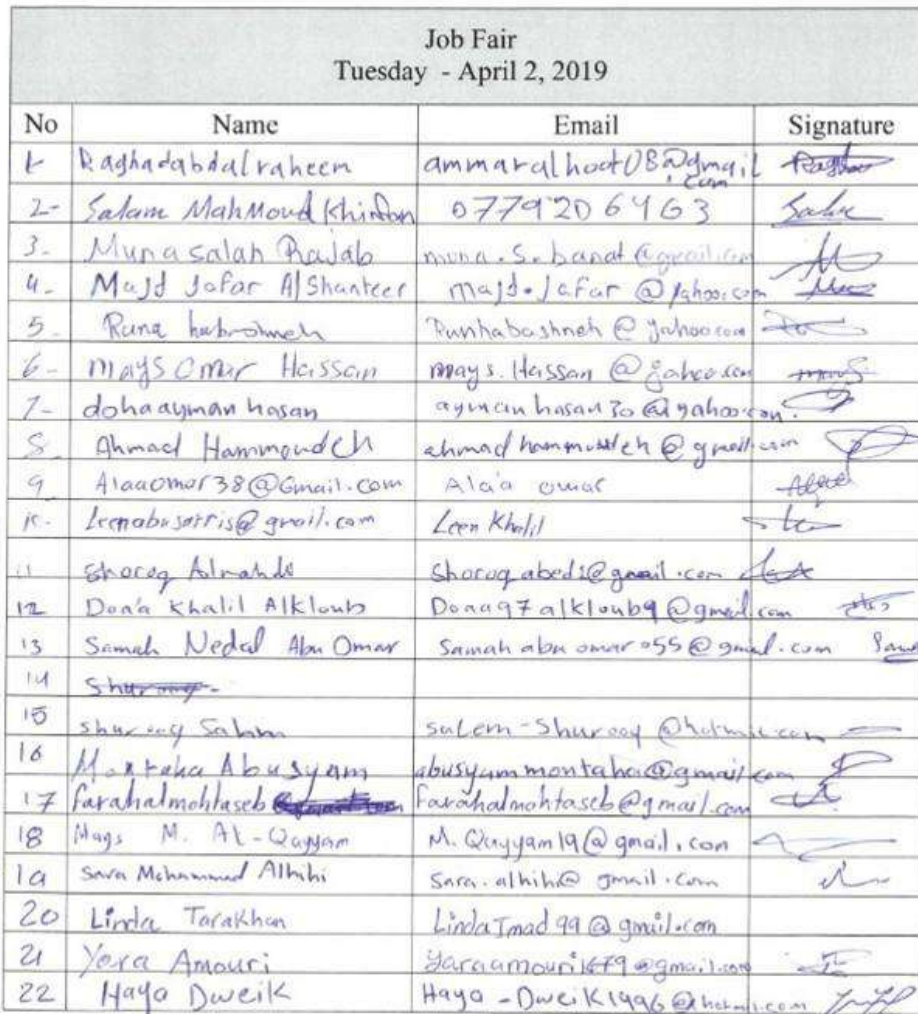 Job Fair
Tuesday - April 2, 2019
No Name Email Signature
1 Raghadabdalraheem ammaralhoot08@gmail.com
2- Salam Mahmoud 0779206463
3- Muna Salah Rajab muna.s.banat@gmail.com
4- Majd Jafar AlShanteer majd.jafar@yahoo.com
5- Runa
6- mays Omar Hassan mays.Hassan@yahoo.com
7- doha ayman hasan aymanhasan30@yahoo.com
8 Ahmad Hammoudeh @gmail.com
9 Alaaomar38@Gmail.com Ala'a omar
10. @gmail.com Leen Khalil
11 Shoroq Almahdi Shoroqabed1@gmail.com
12 Doaa Khalil Alkloub Doaa97alkloub9@gmail.com
13 Samah Nedal Abu Omar Samahabuomar055@gmail.com
14
15 shurooq Salem-Shurooq@hotmail.com
16 Montaha Abusyam abusyammontaha@gmail.com
17 farahalmohtaseb farahalmohtaseb@gmail.com
18 Mays M. Al-Qayyam M.Qayyam19@gmail.com
19 Sara Mohammad Alhihi Sara.alhihi@gmail.com
20 Linda Tarakhan LindaImad99@gmail.com
21 Yara Amouri yaraamouri1679@gmail.com
22 Haya Dweik Haya-Dweik1996@hotmail.com